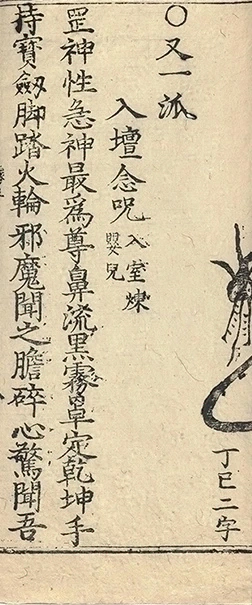 丁巳二字
○又一派
入壇念咒入室煉嬰兒
罡神性急神最爲尊鼻流黑霧罩定乾坤手
持寶劔脚踏火輪邪魔聞之膽碎心驚聞吾